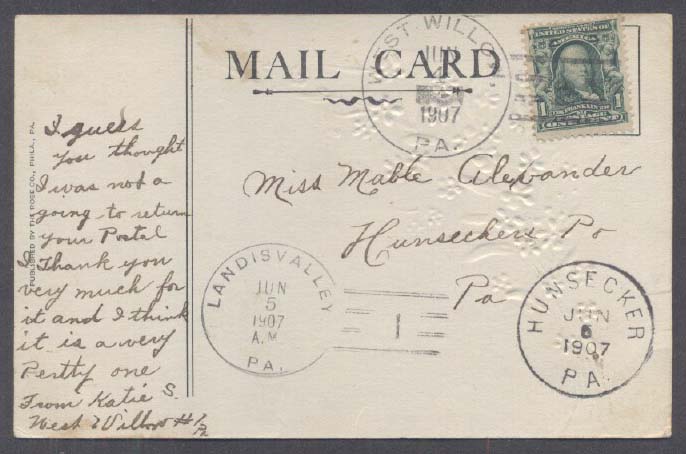 MAIL CARD
WEST WILLOW
JUN
1907
PA.
UNITED STATES OF
AMERICA
FRANKLIN
1 1
ONE CENT
PUBLISHED BY THE ROSE CO., PHILA., PA.
I guess
you thought
I was not a
going to return
your Postal
I Thank you
very much for
it and I think
it is a very
Pertty one
From Katie S.
West Willow #1
Pa
Miss Mable Alexander
Hunseckers Po
Pa
LANDISVALLEY
JUN
5
1907
A.M.
PA.
1
HUNSECKER
JUN
6
1907
PA.